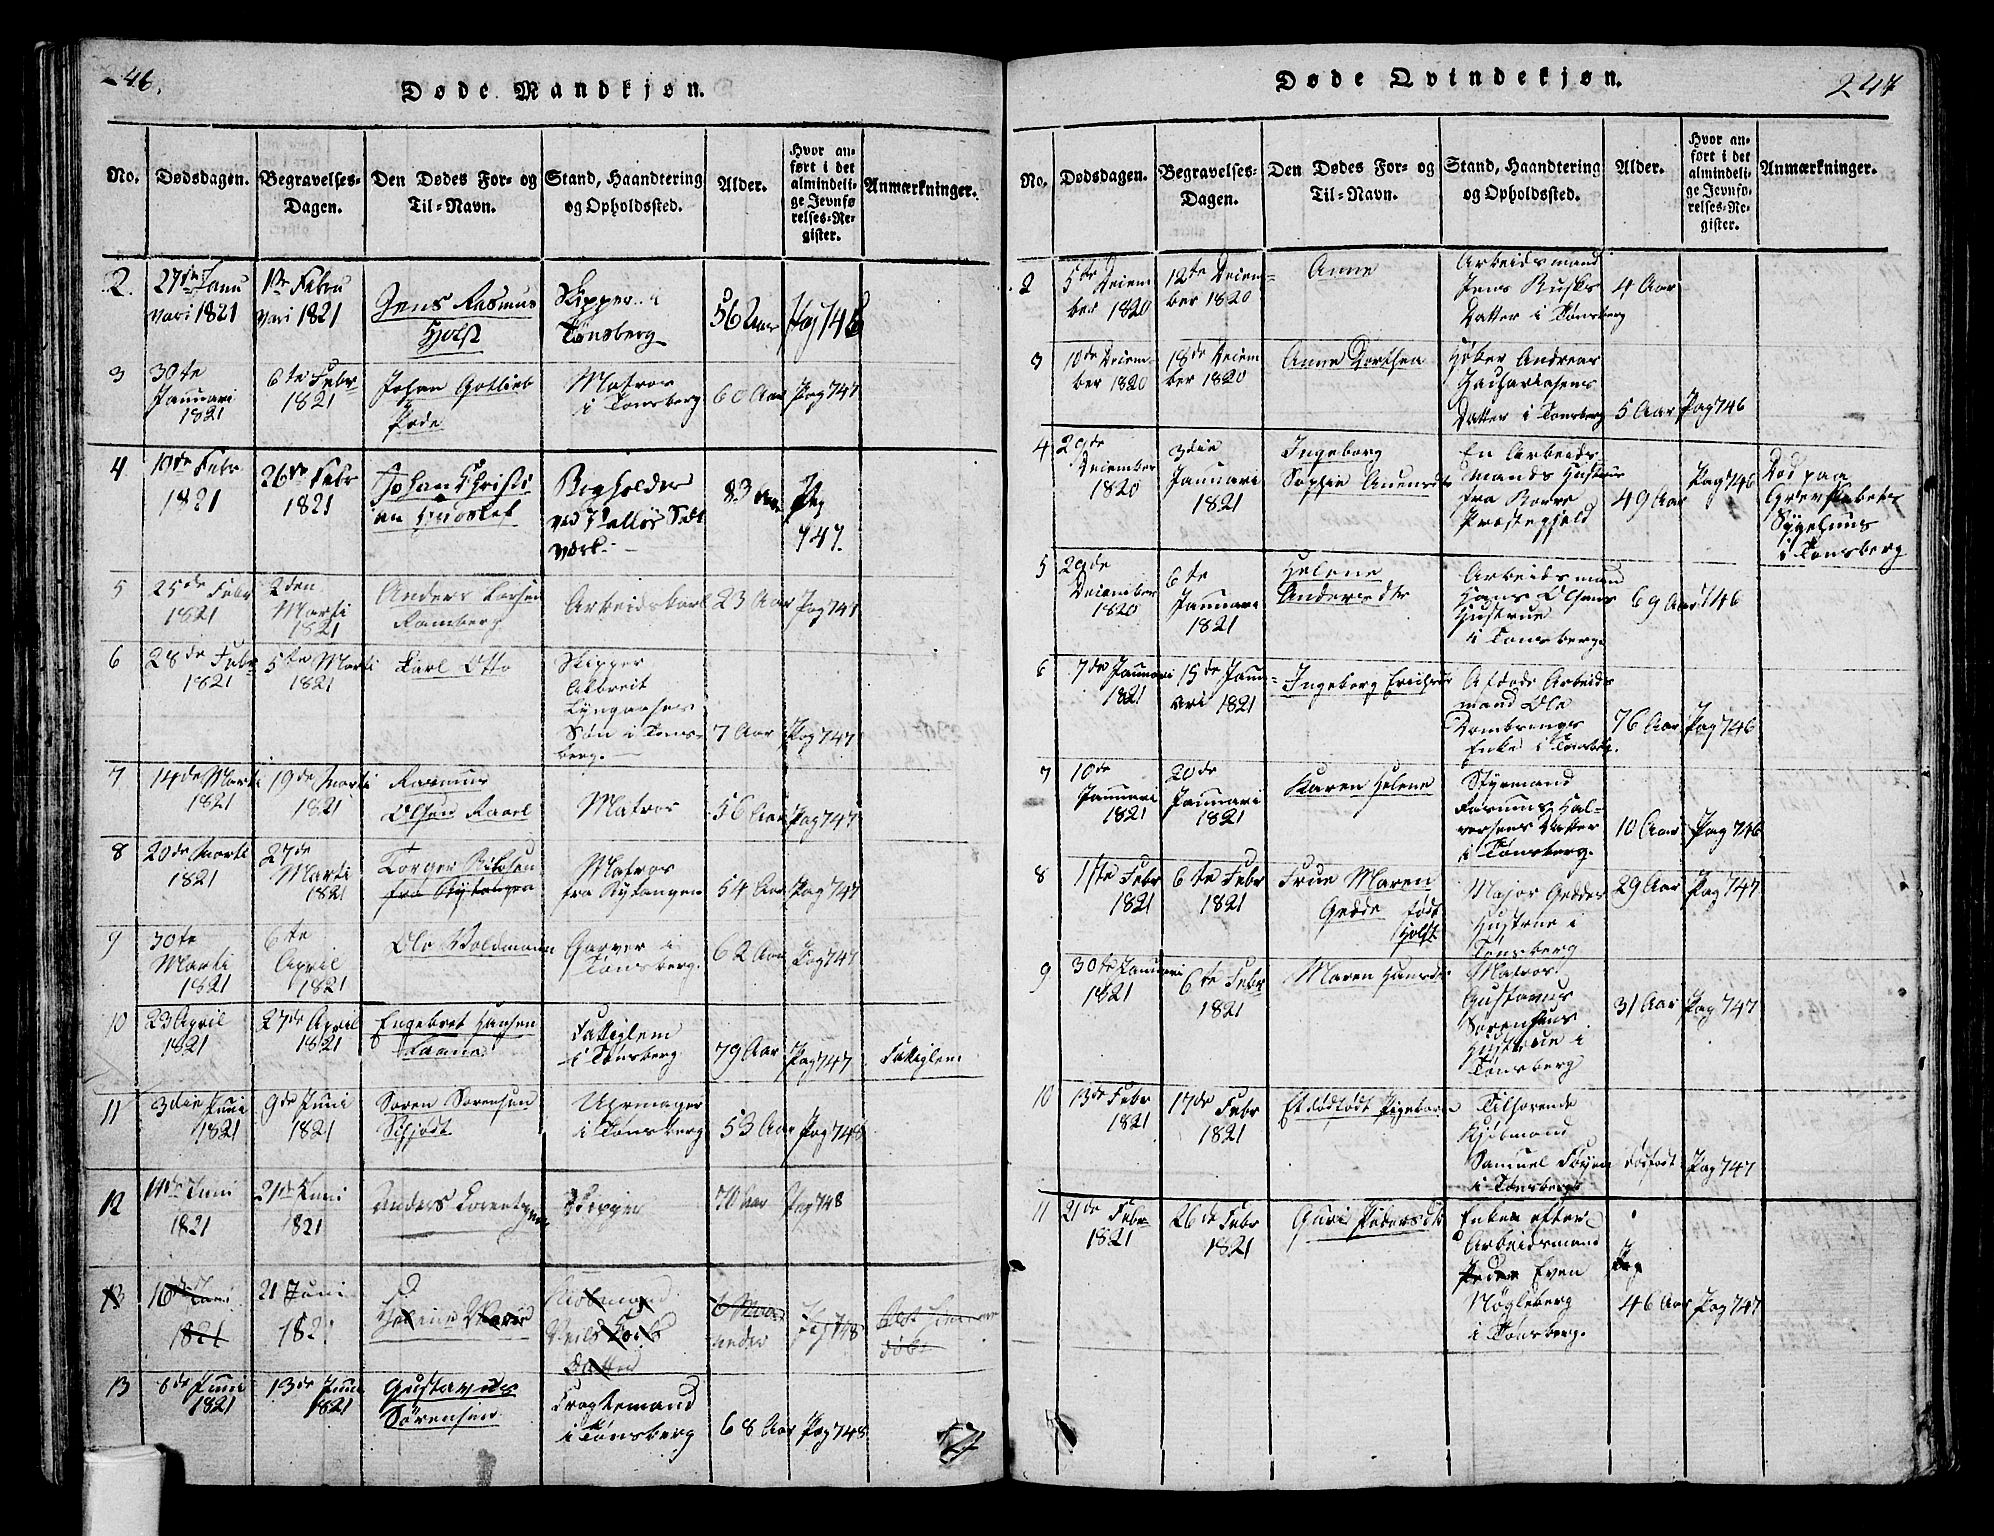 46.
Døde Mandkjøn.
No.
Dødsdagen.
Begravelses-
Dagen.
Den Dødes For- og
Til-Navn.
Stand, Haandtering
og Opholdssted.
Alder.
Hvor an-
ført i det
almindeli-
ge Jevnfø-
relses-Re-
gister.
Anmærkninger.
2.
27de Janu
vari 1821
1ste Febru
vari 1821
Jens Rasmus
Holst
Skipper i
Tønsberg
56 Aar
Pag 746
3
30te
Januari
1821
6te Febr
1821
Johan Gotlieb
Matros
i Tønsberg
60 Aar
Pag 747
4
10de Febr
1821
26de Febr
1821
Johan Christi
an
ved Valløe Salt
værk
83 Aar
Pag
747.
5
25de Febr
1821
2den
Marti
1821
Anders Larsen
Ramberg
Arbeidskarl
23 Aar
Pag 747
6
28de Febr
1821
5te Marti
1821
Karl Otto
Skipper
Albreit
Lyngaases
Søn i Tøns-
berg.
7 Aar
Pag 747
7
14de Marti
1821
19de Marti
1821
Rasmus
Olsen
Matros
56 Aar
Pag 747
8
20de Marti
1821
27de
Marti
1821
Torger
Matros
54 Aar
Pag 747
9
30te
Marti
1821
6te
April
1821
Ole Woldmann
Garver i
Tønsberg.
62 Aar
Pag 747
10
23 April
1821
27de April
1821
Engebret Hansen
Fattiglem
i Tønsberg
79 Aar
Pag 747
Fattiglem
11
3die Juni
1821
9de Juni
1821
Søren Sørensen
Schjødt
Uhrmager
i Tønsberg
53 Aar
Pag 748
12
Juni
1821
21de Juni
1821
Anders Lorentzen
Skipper
70 Aar
Pag 748
13
16de Juni
1821
21 Juni
1821
Datter
6 Maa
neder
Pag 748
døbt
13
6de Juni
1821
13de Juni
1821
Gustavus
Sørensen
i Tønsberg
68 Aar
Pag 748
Døde Qvindekjøn.
247
No.
Dødsdagen.
Begravelses-
Dagen.
Den Dødes For- og
Til-Navn.
Stand, Haandtering
og Opholdssted.
Alder.
Hvor an-
ført i det
almindeli-
ge Jevnfø-
relses-Re-
gister.
Anmærkninger.
2
5te Decem
ber 1820
12te Decem-
ber 1820
Anne
Arbeidsmand
Jens Rusks
Datter i Tønsberg
4 Aar
3
10de Decem-
ber 1820
18de Decem
ber 1820
Anne Dorthea
Høker Andreas
Zachariasens
Datter i Tønsberg
5 Aar
Pag 746
4
29de
December
1820
3die
Januari
1821
Ingeborg
Sophie
En Arbeids
mands Hustrue
fra Borre
Præstegjeld
49 Aar
Pag 746
Død paa
Grevskabets
Sygehuus
i Tønsberg
5
29de
December
1820
6te
Januari
1821
Helene
Andersdtr
Arbeidsmand
Hans Olsens
Hustrue
i Tønsberg.
69 Aar
746
6
7de Januari
1821
15de Janu-
ari 1821
Ingeborg Erichsdtr
Afdøde Arbeids
mand Ole
Enke i Tønsbg.
76 Aar
Pag 746
7
10de
Januari
1821
20de
Januari
1821
Karen Helene
Styrmand
Rasmus Hal-
versens Datter
i Tønsberg.
10 Aar
Pag 746
8
1ste Febr
1821
6te Febr
1821
Frue Maren
Gedde født
Holst
Major Geddes
Hustrue i
Tønsberg
29 Aar
Pag 747
9
30te Januari
1821
6te Febr
1821
Maren Hansdtr
Matros
Gustavus
Sørensens
Hustrue i
Tønsberg
31 Aar
Pag 747
10
13de Febr
1821
17de Febr
1821
Et dødfødt Pigebarn
Tilhørende
Kjøbmand
Samuel Føyen
i Tønsberg
dødfødt
Pag 747
11
21de Febr
1821
26de Febr
1821
Guri Pedersdtr
Enke efter
Arbeidsmand
Peder Even
Nøgleberg
i Tønsberg.
Pag
46 Aar
Pag 747